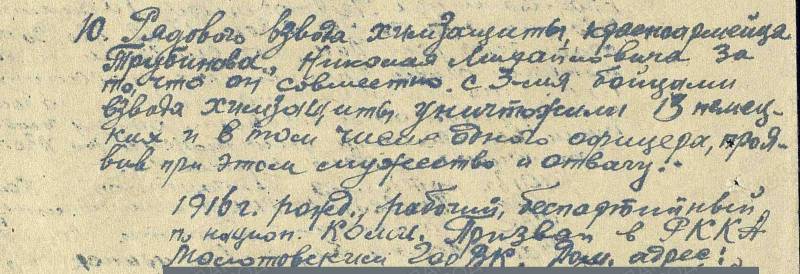 10. Рядового взвода химзащиты, красноармейца
Трубинова, Николая Михайловича за
то, что он совместно с 3-мя бойцами
взвода химзащиты уничтожили 13 немец-
ких и в том числе одного офицера, прояв-
вив при этом мужество и отвагу.
1916 г. рожд., рабочий, беспартийный,
по национ. коми. Призван в РККА
Молотовским Гор ВК. Дом. адрес: